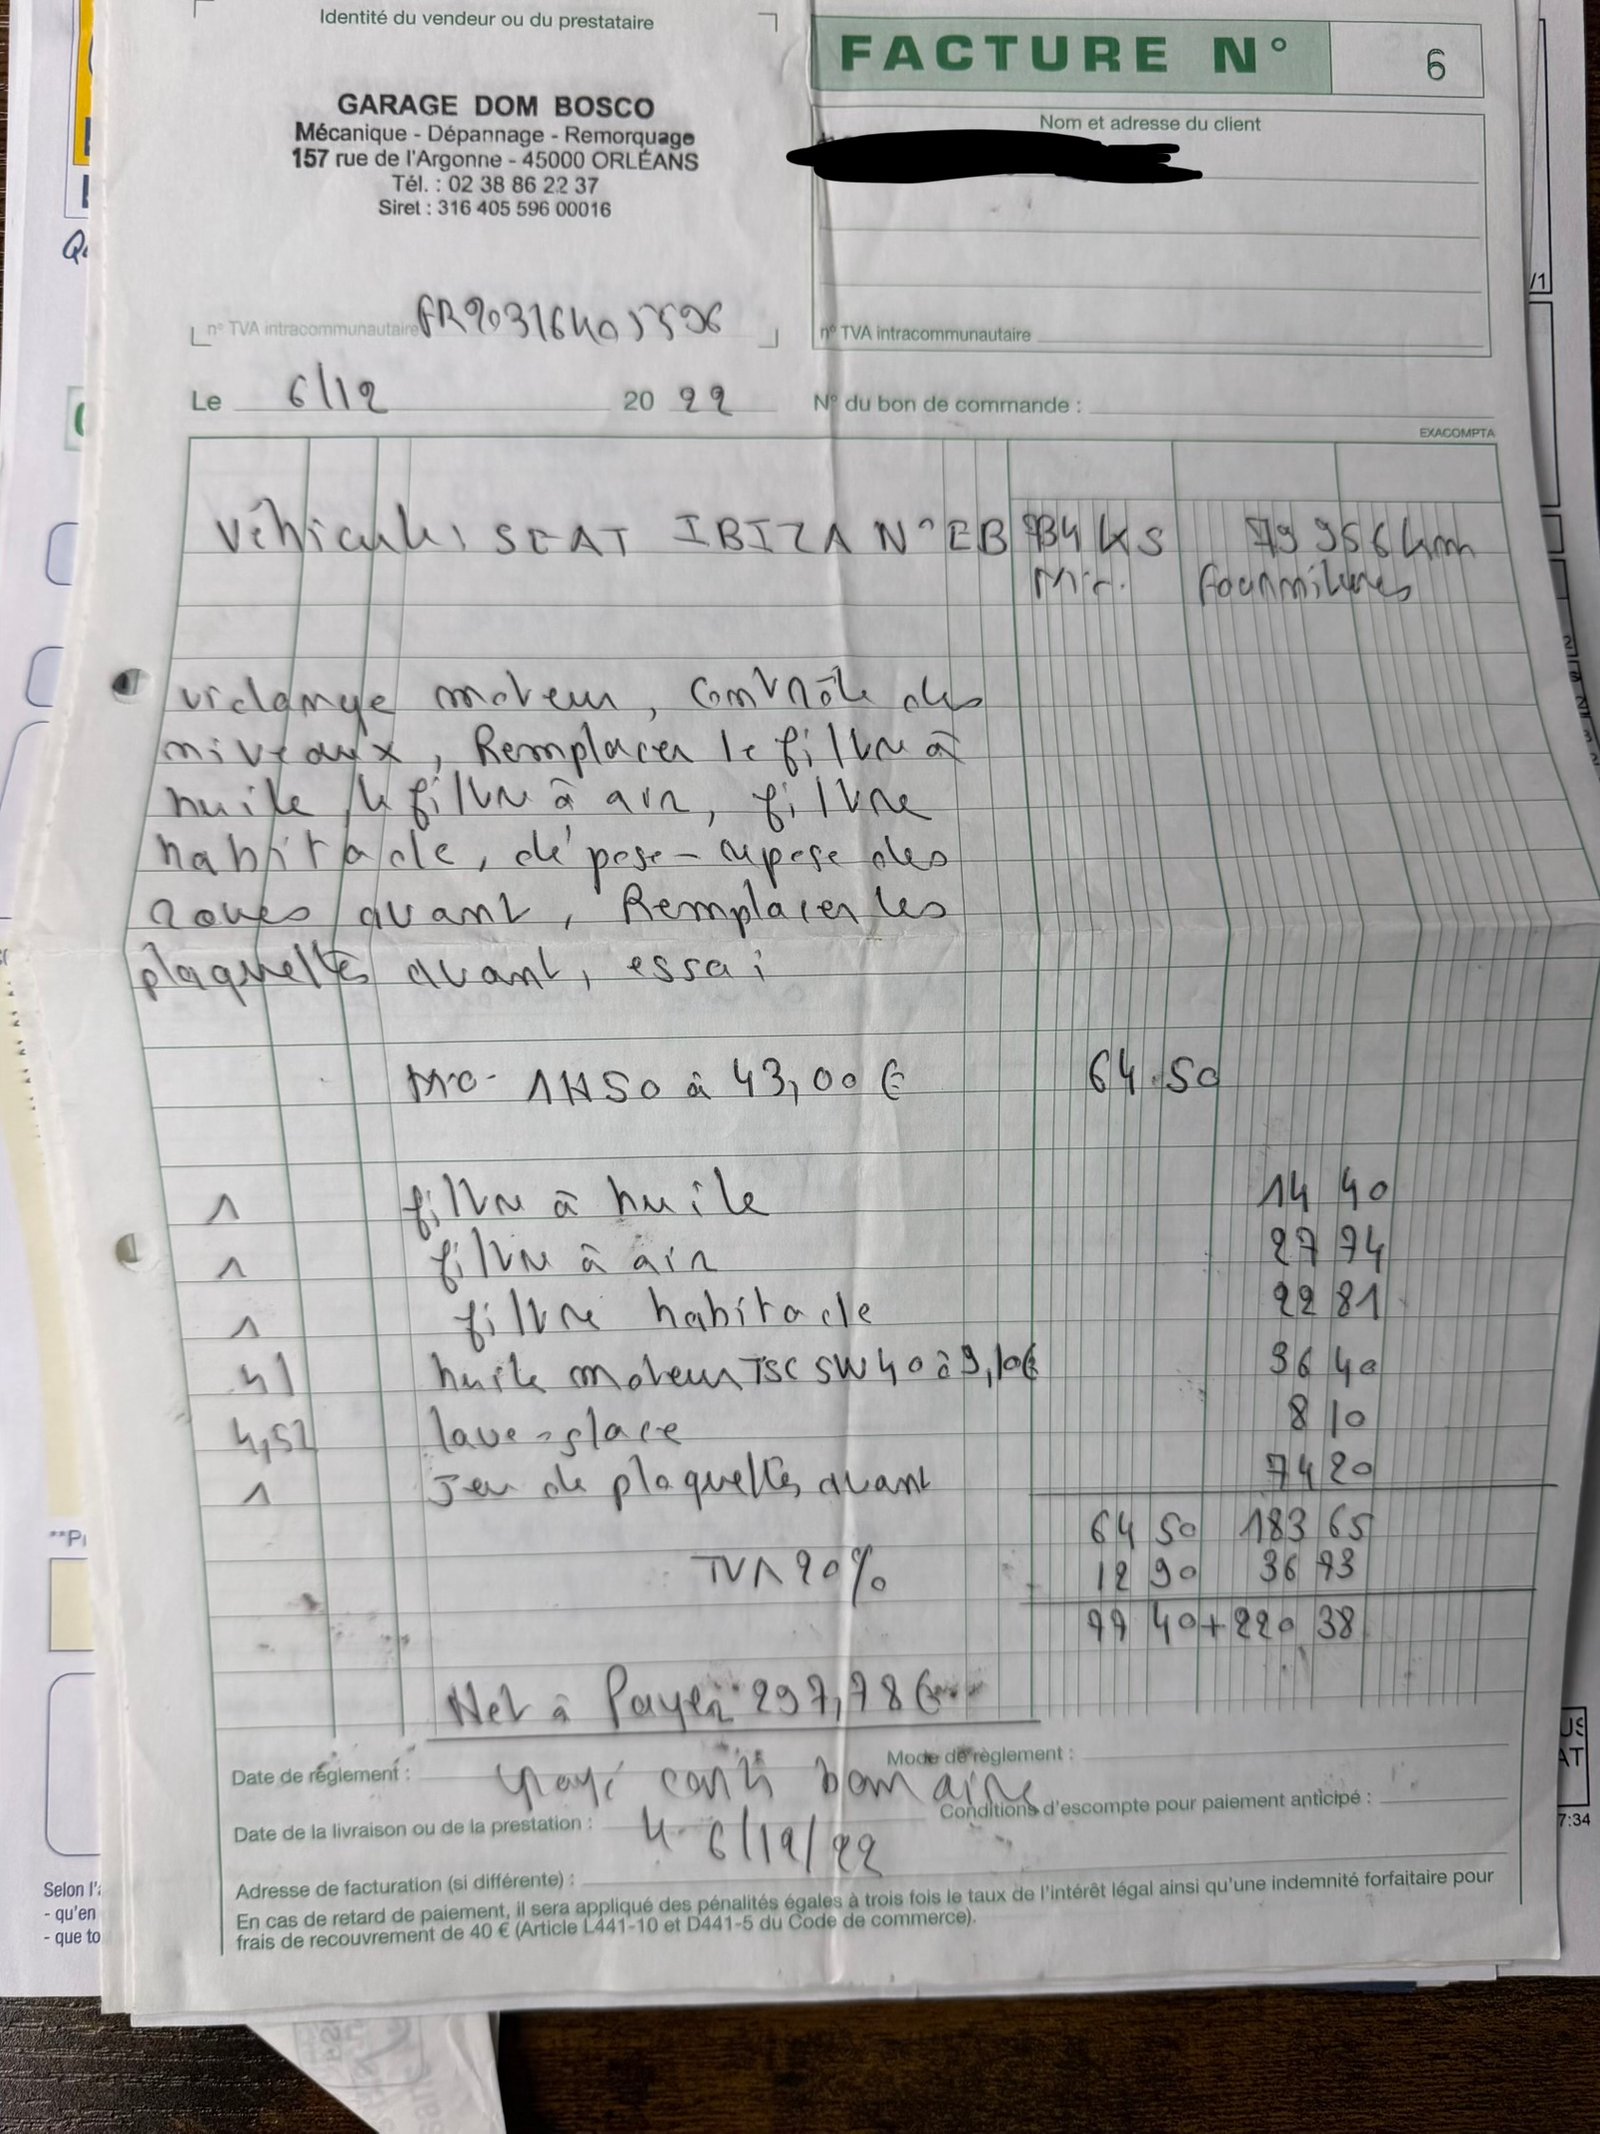 Identité du vendeur ou du prestataire
FACTURE N° 6
GARAGE DOM BOSCO
Mécanique - Dépannage - Remorquage
157 rue de l'Argonne - 45000 ORLÉANS
Tél. : 02 38 86 22 37
Siret : 316 405 596 00016
Nom et adresse du client
n° TVA intracommunautaire FR90316405596
n° TVA intracommunautaire
Le 6/12 20 22
N° du bon de commande :
EXACOMPTA
Véhicule: SEAT IBIZA N° EB 734 KS 79 956 km
M.o. Fournitures
vidange moteur, Contrôle des
niveaux, Remplacer le filtre à
huile, le filtre à air, filtre
habitacle, dépose-repose des
roues avant, Remplacer les
plaquettes avant, essai
M.O. 1H50 à 43,00€ 64.50
1 filtre à huile 14 40
1 filtre à air 27 74
1 filtre habitacle 22 81
4l huile moteur TSC 5W40 à 9,10€ 36 40
4,5l lave-glace 8 10
1 Jeu de plaquettes avant 74 20
64 50 183 65
TVA 20% 12 90 36 73
77 40 + 220 38
Net à Payer 297,78€
Date de réglement : payé carte bancaire
Mode de règlement :
Conditions d'escompte pour paiement anticipé :
Date de la livraison ou de la prestation : le 6/12/22
Adresse de facturation (si différente) :
En cas de retard de paiement, il sera appliqué des pénalités égales à trois fois le taux de l'intérêt légal ainsi qu'une indemnité forfaitaire pour
frais de recouvrement de 40 € (Article L441-10 et D441-5 du Code de commerce).
/1
**P
7:34
Selon l'
- qu'en
- que to